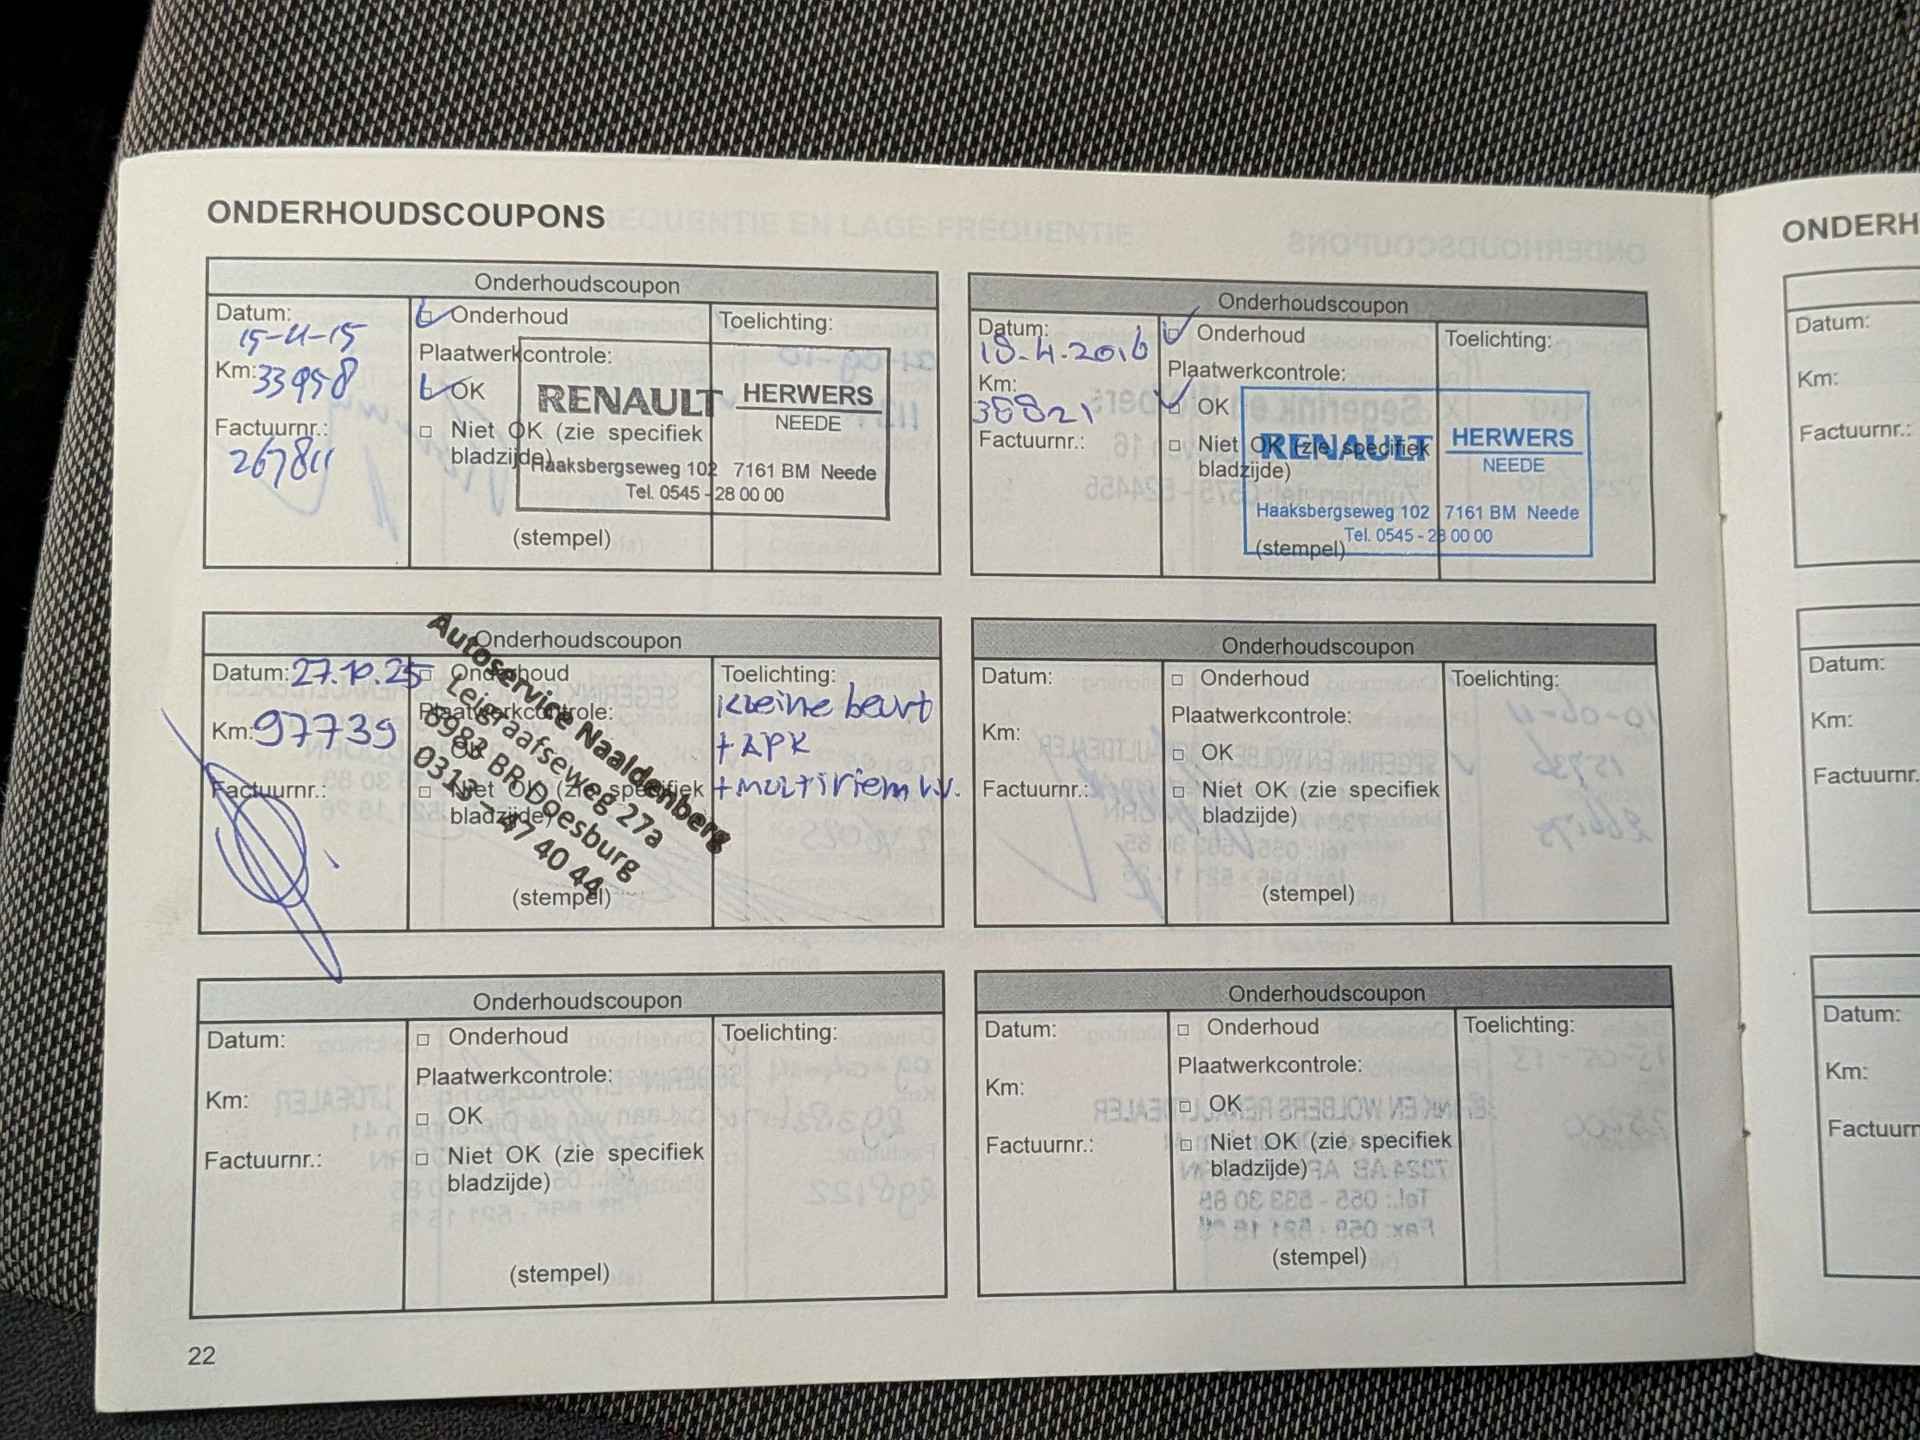 ONDERHOUDSCOUPONS
Onderhoudscoupon
Datum:
Km: 33958
Factuurnr.:
267811
Onderhoud
Plaatwerkcontrole:
OK
Niet OK (zie specifiek
bladzijde)
(stempel)
Toelichting:
RENAULT HERWERS
NEEDE
Haaksbergseweg 102 7161 BM Neede
Tel. 0545 - 28 00 00
Onderhoudscoupon
Datum:
18-4-2016
Km:
38821
Factuurnr.:
Onderhoud
Plaatwerkcontrole:
OK
Niet OK (zie specifiek
bladzijde)
(stempel)
Toelichting:
RENAULT HERWERS
NEEDE
Haaksbergseweg 102 7161 BM Neede
Tel. 0545 - 28 00 00
Onderhoudscoupon
Datum: 27.10.25
Km: 97739
Factuurnr.:
Onderhoud
Plaatwerkcontrole:
OK
Niet OK (zie specifiek
bladzijde)
(stempel)
Autoservice Naaldenberg
Leigraafseweg 27a
6983 BR Doesburg
0313 - 47 40 44
Toelichting:
Kleine beurt
+ APK
+ multiriem v.v.
Onderhoudscoupon
Datum:
Km:
Factuurnr.:
Onderhoud
Plaatwerkcontrole:
OK
Niet OK (zie specifiek
bladzijde)
(stempel)
Toelichting:
Onderhoudscoupon
Datum:
Km:
Factuurnr.:
Onderhoud
Plaatwerkcontrole:
OK
Niet OK (zie specifiek
bladzijde)
(stempel)
Toelichting:
Onderhoudscoupon
Datum:
Km:
Factuurnr.:
Onderhoud
Plaatwerkcontrole:
OK
Niet OK (zie specifiek
bladzijde)
(stempel)
Toelichting:
22
ONDERH
Datum:
Km:
Factuurnr.:
Datum:
Km:
Factuurnr.
Datum:
Km:
Factuurn